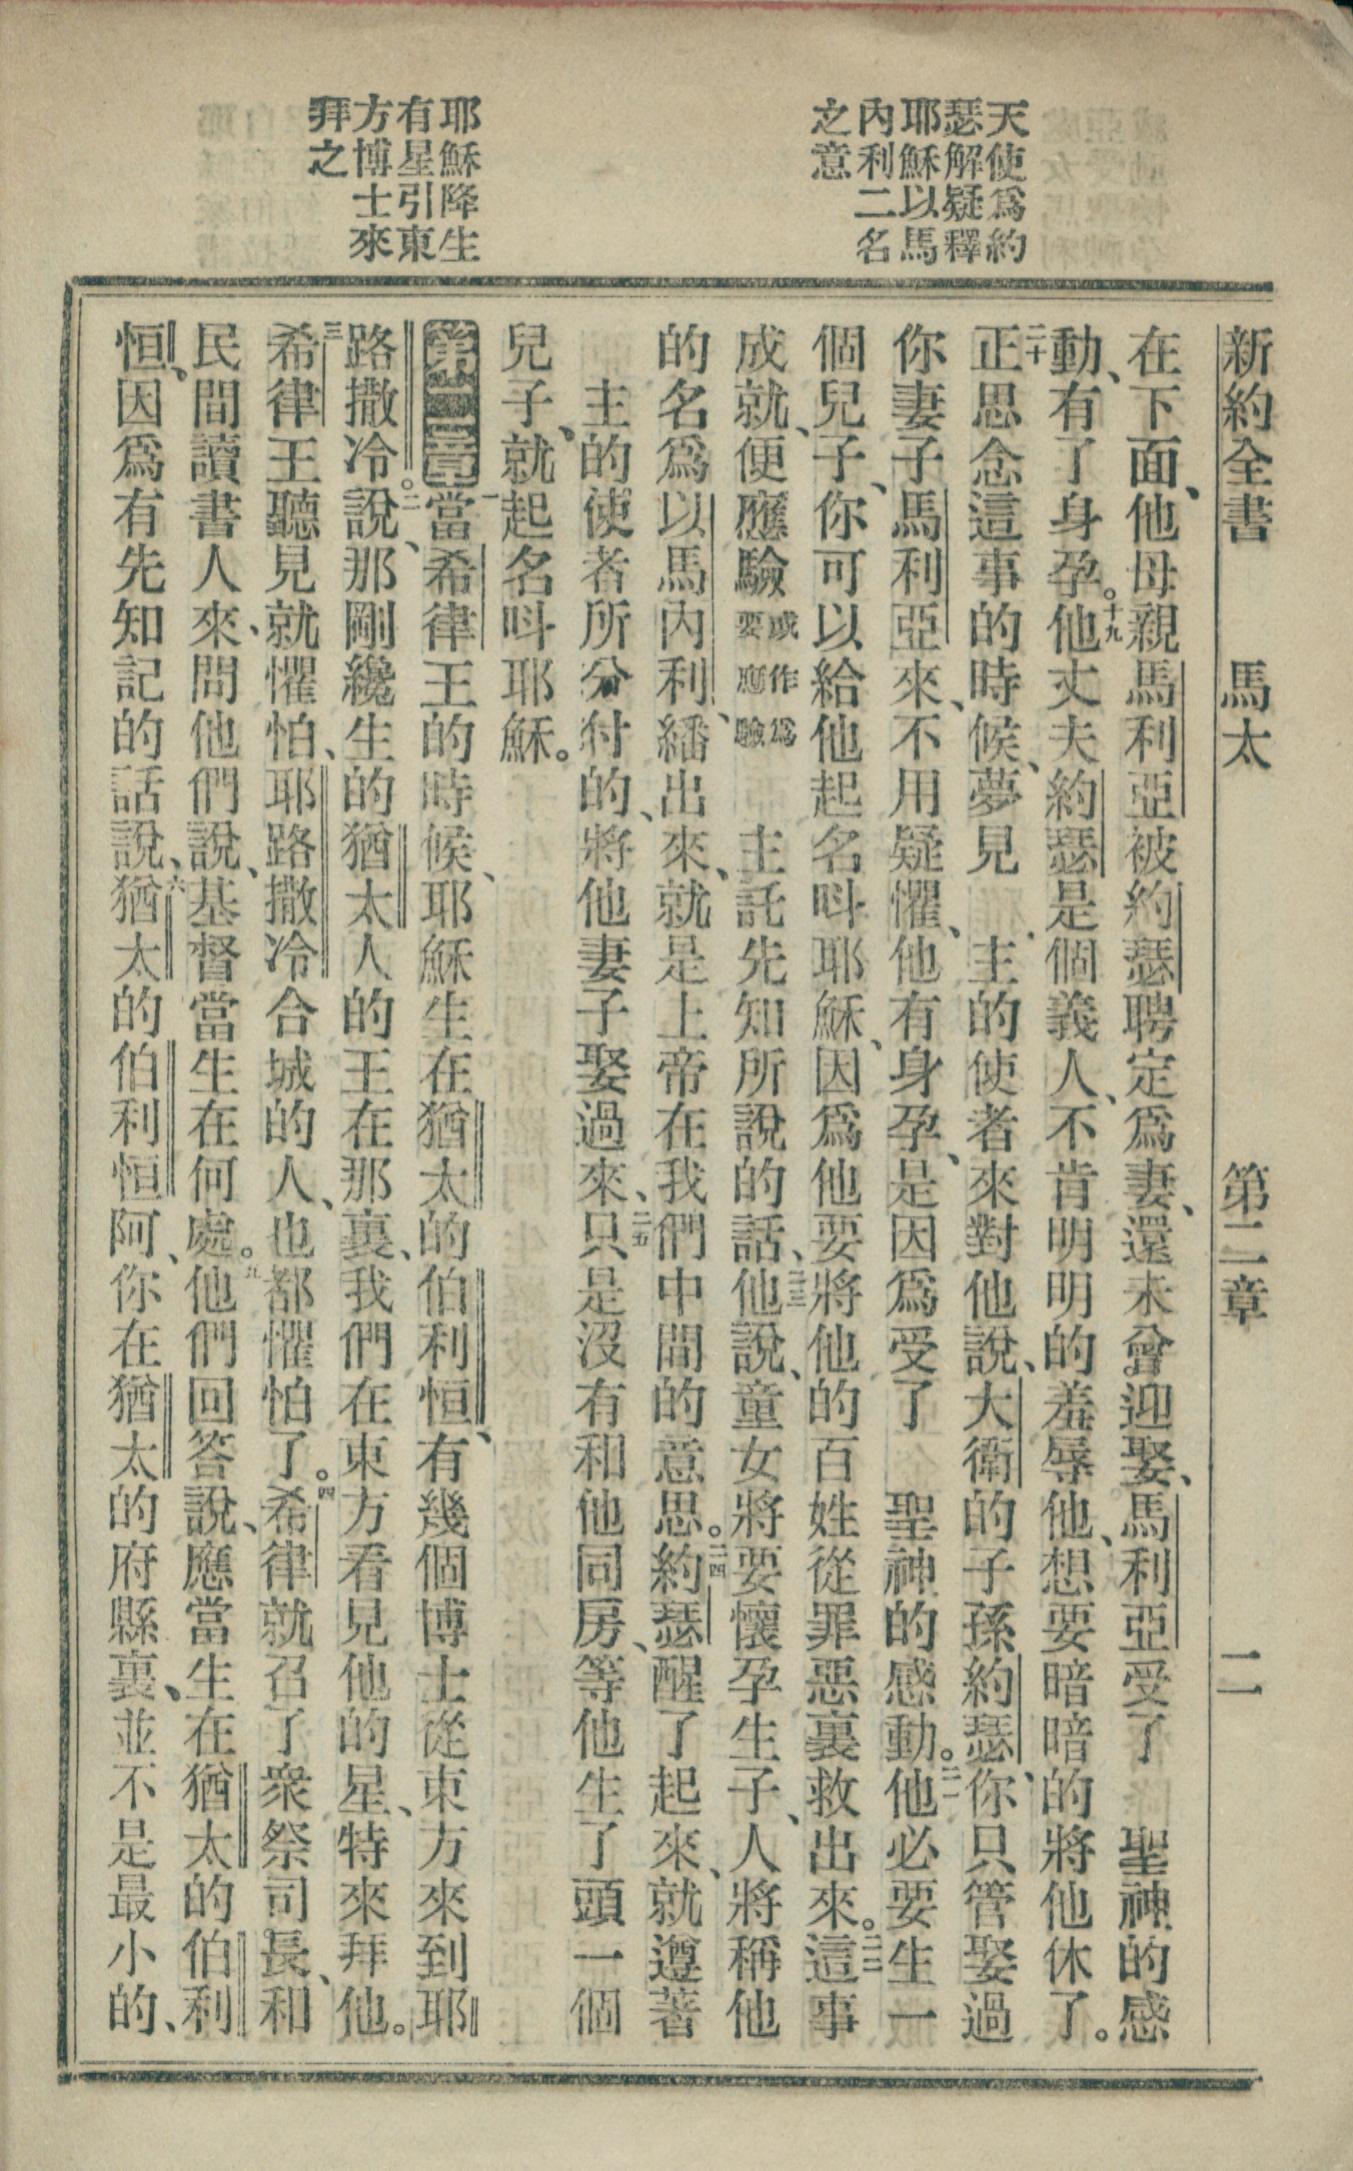 天使爲約
瑟解疑釋
耶穌以馬
內利二名
之意
耶穌降生
有星引東
方博士來
拜之
新約全書 馬太 第二章 二
在下面、他母親馬利亞被約瑟聘定爲妻、還未曾迎娶、馬利亞受了 聖神的感
動、有了身孕。十九他丈夫約瑟是個義人、不肯明明的羞辱他、想要暗暗的將他休了。
二十正思念這事的時候、夢見 主的使者來對他說、大衛的子孫約瑟、你只管娶過
你妻子馬利亞來、不用疑懼、他有身孕、是因爲受了 聖神的感動。二一他必要生一
個兒子、你可以給他起名呌耶穌、因爲他要將他的百姓從罪惡裏救出來。二二這事
成就、便應驗或作爲要應驗 主託先知所說的話、二三他說、童女將要懷孕生子、人將稱他
的名爲以馬內利、繙出來、就是上帝在我們中間的意思。二四約瑟醒了起來、就遵著
主的使者所分付的、將他妻子娶過來、二五只是沒有和他同房、等他生了頭一個
兒子、就起名呌耶穌。
第二章一當希律王的時候、耶穌生在猶太的伯利恒、有幾個博士從東方來到耶
路撒冷。二說、那剛纔生的猶太人的王在那裏、我們在東方看見他的星、特來拜他。
三希律王聽見就懼怕、耶路撒冷合城的人、也都懼怕了。四希律就召了衆祭司長、和
民間讀書人來、問他們說、基督當生在何處。五他們回答說、應當生在猶太的伯利
恒、因爲有先知記的話說、六猶太的伯利恒阿、你在猶太的府縣裏、並不是最小的、